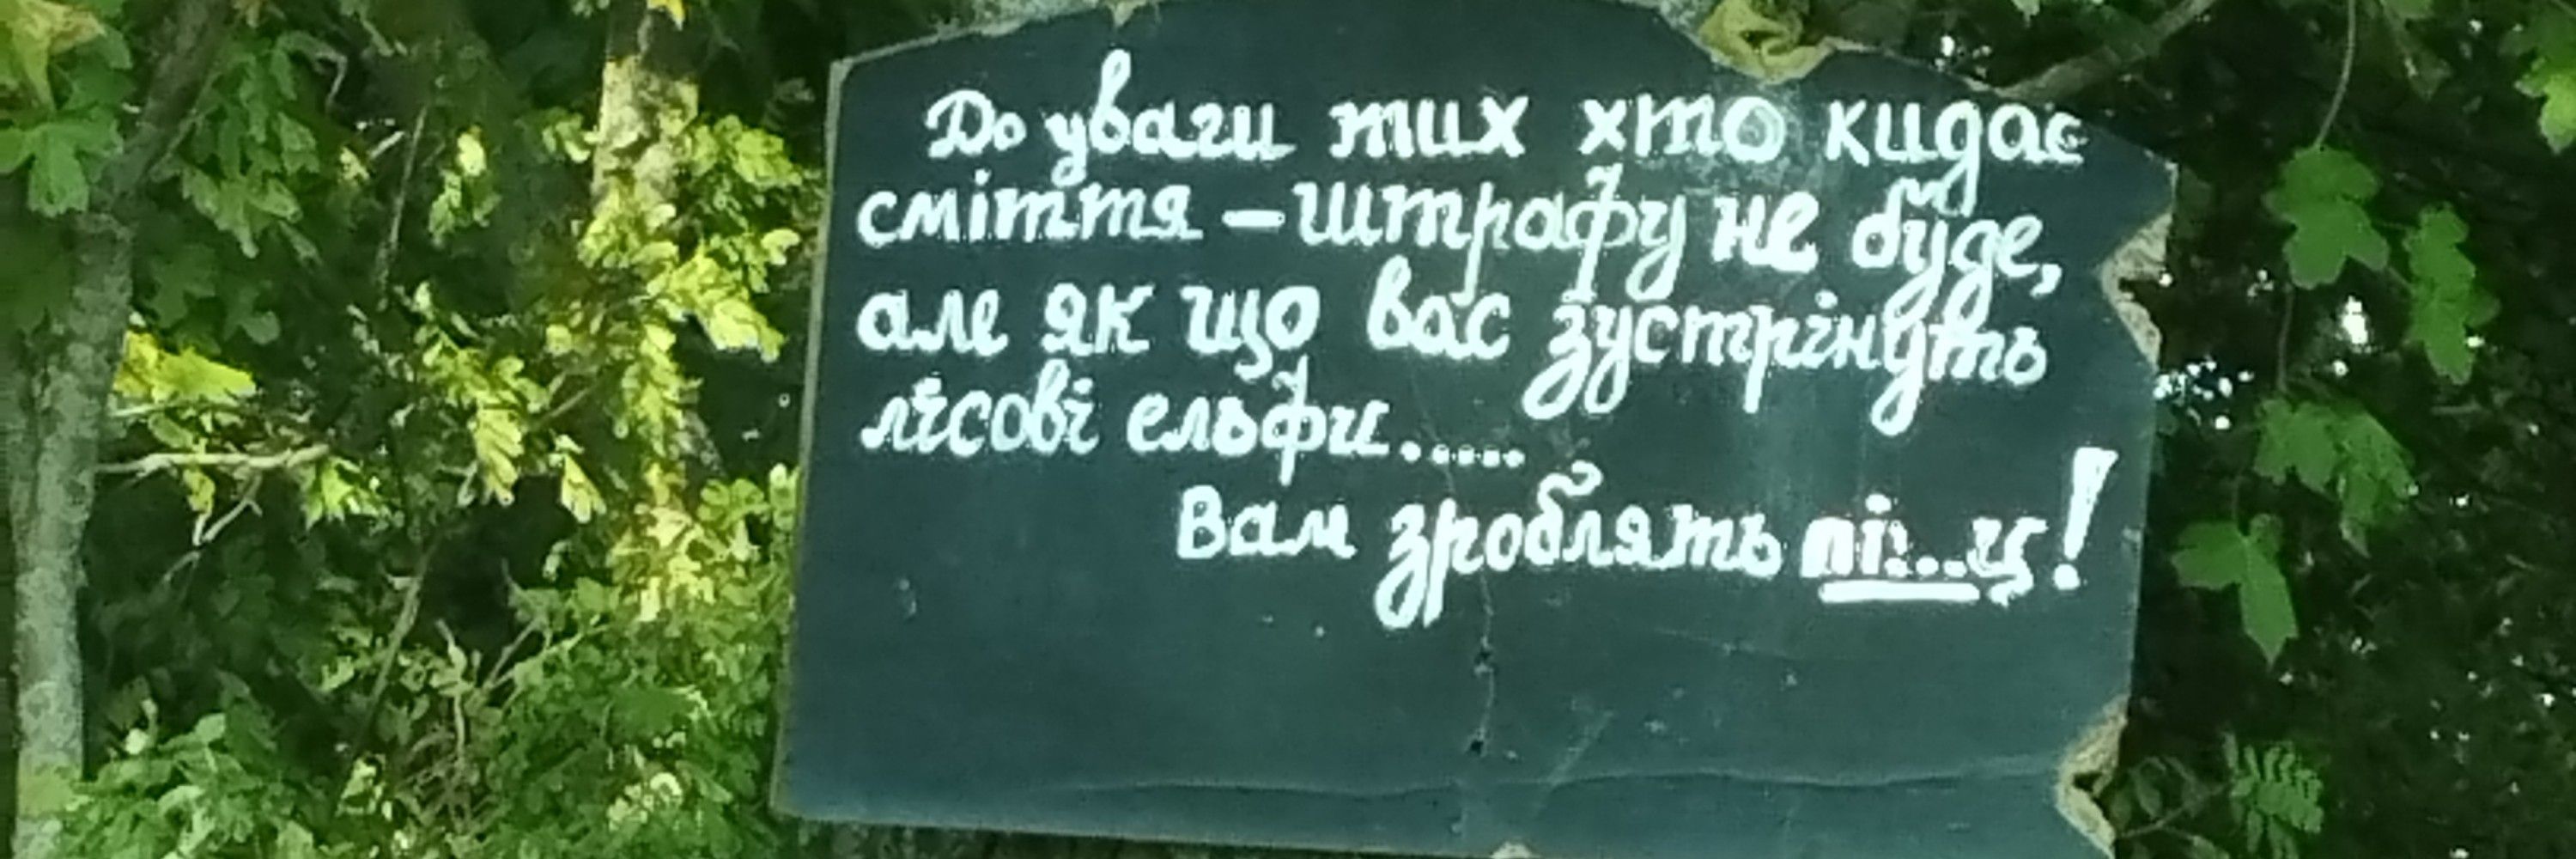 До уваги тих хто кидає
сміття – штрафу не буде,
але як що вас зустрінуть
лісові ельфи......
Вам зроблять пі...ц!